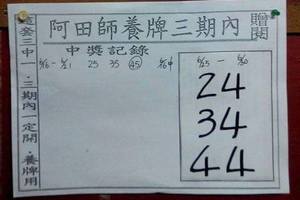 阿田師養牌三期內
贈閱
中獎記錄
6/16 - 6/21 25 35 45 6/16中
6/25 - 6/30
24
34
44
套二中一·三期內一定開·養牌用